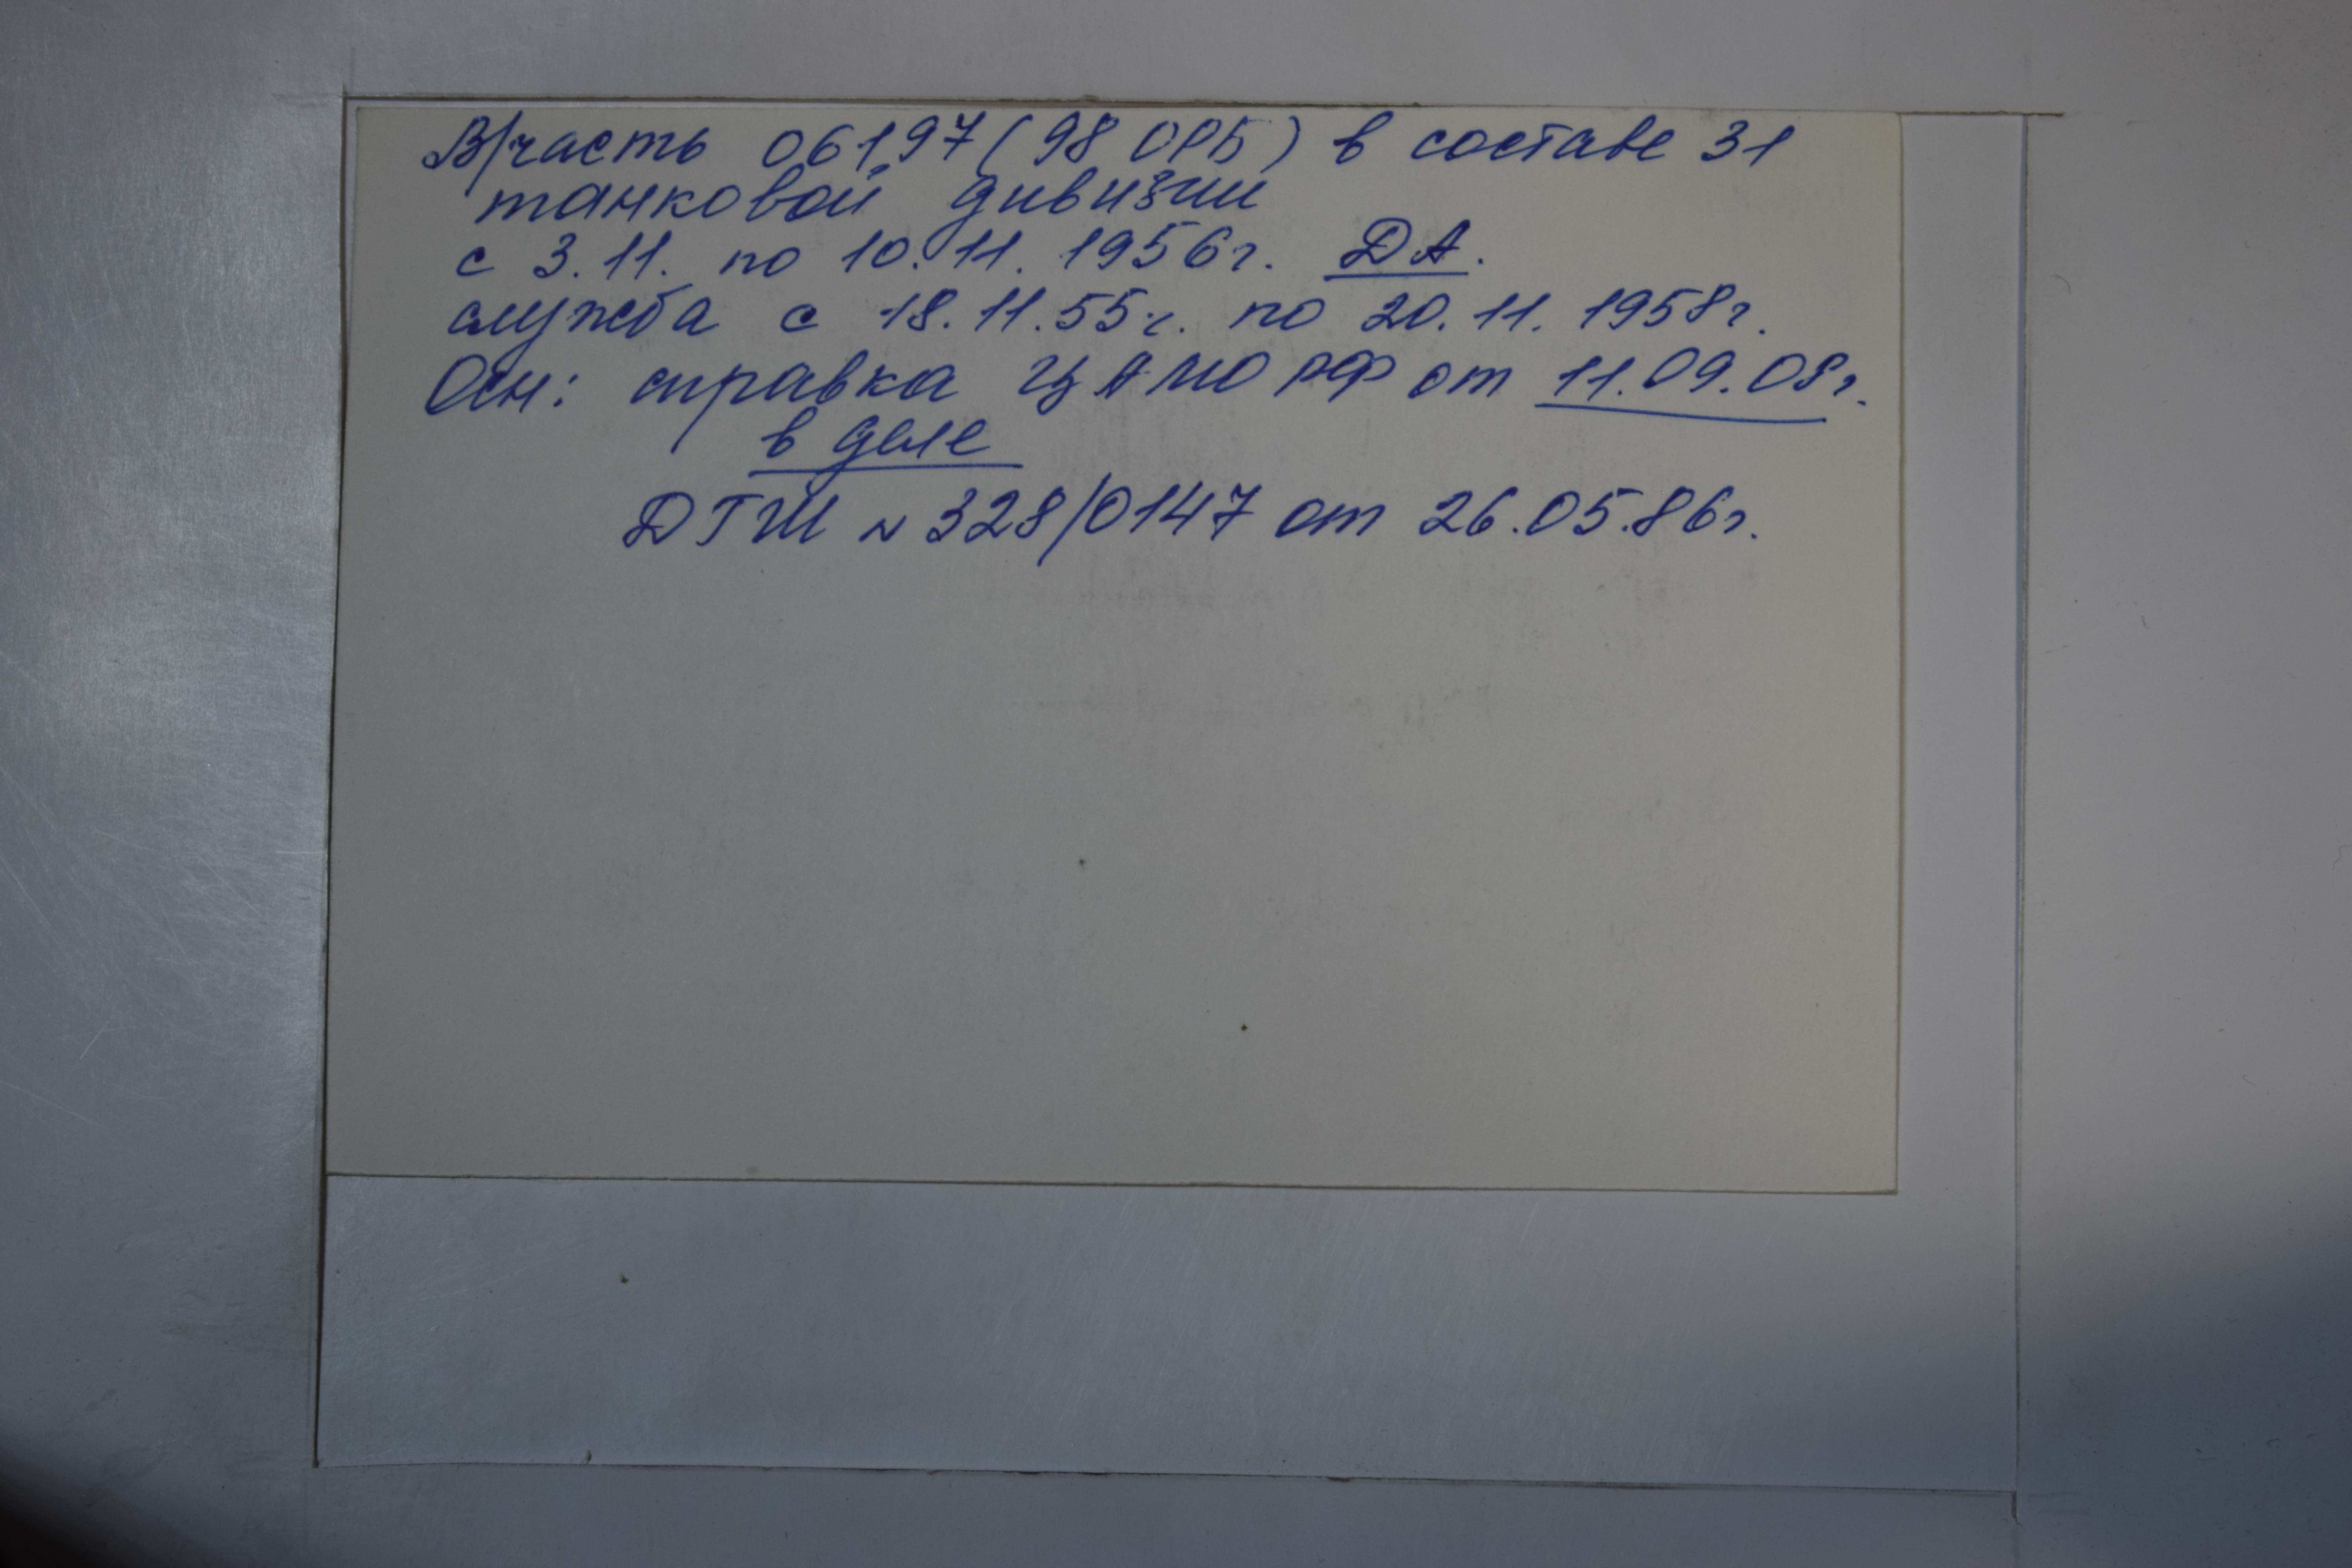 В/часть 06197 (98 ОРБ) в составе 31
танковой дивизии
с 3.11. по 10.11. 1956г. ДА.
служба с 18.11.55г. по 20.11. 1958г.
Осн: справка ЦАМО РФ от 11.09.08г.
в деле
ДГШ № 328/0147 от 26.05.86г.